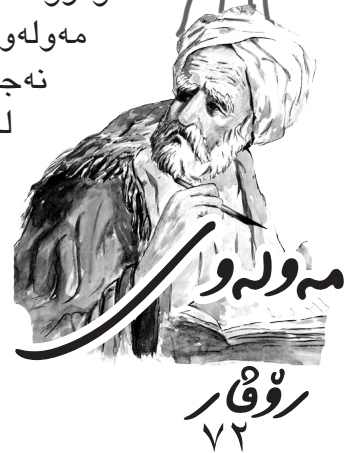 مەولەو
نەج
ل
مەولەوی
رۆڤار
٧٢